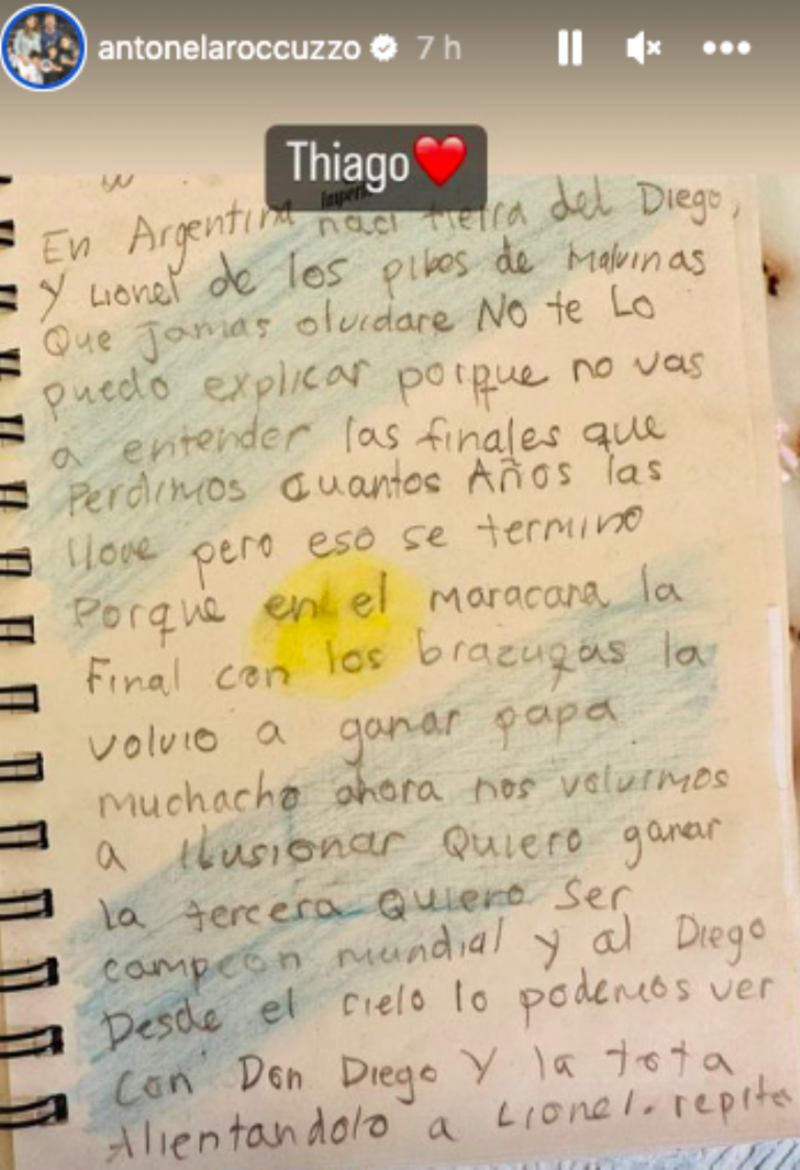 antonelaroccuzzo 7 h
Thiago❤️
En Argentina naci tierra del Diego,
y Lionel de los pibes de Malvinas
Que jamas olvidare NO te Lo
puedo explicar porque no vas
a entender las finales que
Perdimos cuantos Años las
llore pero eso se termino
Porque en el maracana la
Final con los brazugas la
volvio a ganar papa
muchacho ahora nos volvimos
a Ilusionar Quiero ganar
la tercera Quiero Ser
campeon mundial y al Diego
Desde el cielo lo podemos ver
Con Don Diego Y la tota
Alientandolo a Lionel. repite